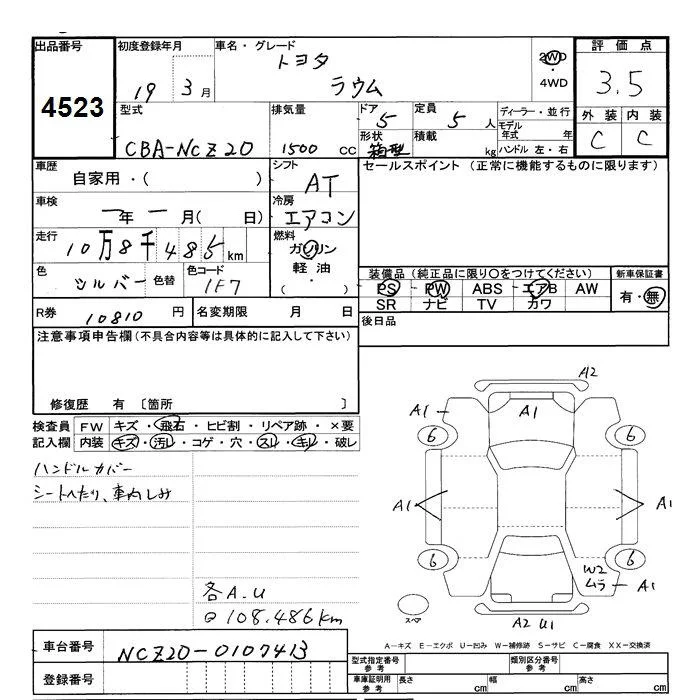 出品番号
4523
初度登録年月
19 3月
車名・グレード
トヨタ
ラウム
2WD
・
4WD
評価点
3.5
外装 内装
C C
型式
CBA-NCZ20
排気量
1500 cc
ドア
5
形状
箱型
定員
5人
積載
kg
ディーラー・並行
モデル
年式 年
ハンドル 左・右
車歴
自家用・( )
シフト
AT
セールスポイント (正常に機能するものに限ります)
車検
ー年ー月( 日)
冷房
エアコン
走行
10万8千485km
燃料
ガソリン
軽油・
( )
色
シルバー
色替
色コード
1F7
装備品(純正品に限り○をつけてください)
新車保証書
PS PW ABS エアB AW
有・無
SR ナビ TV カワ
R券
10810円
名変期限 月 日
後日品
注意事項申告欄(不具合内容等は具体的に記入して下さい)
修復歴 有 〔箇所 〕
検査員 FW キズ・飛石・ヒビ割・リペア跡・×要
記入欄 内装 キズ・汚レ・コゲ・穴・スレ・キレ・破レ
ハンドルカバー
シートへたり、車内しみ
各A.U
@108.486km
A2
A1 A1
6 6
A1 A1
6 6
W2
ムラ A1
スペア
A2 U1
A-キズ E-エクボ U-凹み W-補修跡 S-サビ C-腐食 XX-交換済
車台番号
NCZ20-0107413
登録番号
型式指定番号
参考
類別区分番号
参考
車庫証明用
参考
長さ cm 幅 cm 高さ cm